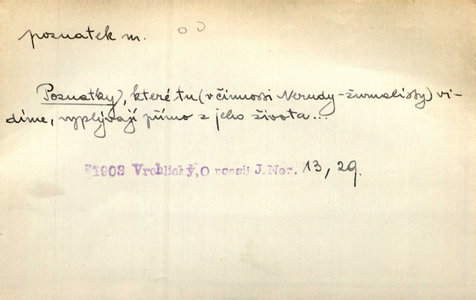 poznatek m.
Poznatky, které tu (v činnosti Nerudy-žurnalisty) vi-
díme, vyplývají přímo z jeho života...
1903 Vrchlický, O poesii J. Ner. 13, 29.